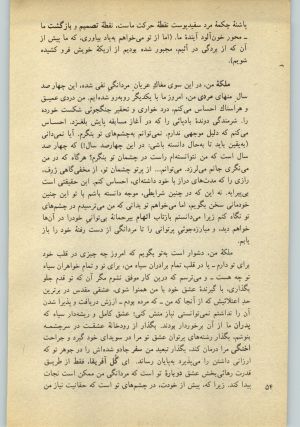 باشنهٔ چکمهٔ مرد سفیدپوست نقطهٔ حرکت ماست. نقطهٔ تصمیم و بازگشت ما
ـ محور خون‌آلود آیندهٔ ما. (اما از تو می‌خواهم به‌یاد بیاوری، که ما پیش از
آن که از بردگی در آئیم، مجبور شده بودیم از اریکهٔ خویش فرو کشیده
شویم).
ملکهٔ من، در این سوی مغاک عریان مردانگی نفی شده، این چهار صد
سال منهای مردی من، امروز ما با یکدیگر روبه‌رو شده‌ایم. من دردی عمیق
و هراسناک احساس می‌کنم، درد خواری و تحقیر جنگجوئی شکست خورده
را. شرمندگی دوندهٔ بادپائی را که در آغاز مسابقه پایش بلغزد. احساس
می‌کنم که دلیل موجهی ندارم. نمی‌توانم به‌چشم‌های تو بنگرم. آیا نمی‌دانی
(به‌یقین باید تا به‌حال دانسته باشی: در این چهارصد سال!) که چهار صد
سال است که من نتوانسته‌ام راست در چشمان تو بنگرم؟ هرگاه که در من
می‌نگری جانم می‌لرزد. می‌توانم... از پرتو چشمان تو، از مخفی‌گاهی ژرف،
رازی را که مدت‌های دراز با خود داشته‌ای، احساس کنم. این حقیقتی است
بی‌پیرایه. نه این که در چنین شرایطی، موجه دانسته باشم با تو این چنین
خودمانی سخن بگویم، اما می‌خواهم تو بدانی که من می‌ترسیدم در چشم‌های
تو نگاه کنم زیرا می‌دانستم بازتاب اتهام بیرحمانهٔ بی‌توانی خودرا در آن‌ها
خواهم دید، و مبارزه‌جوئی پرتوانی را تا مردانگی از دست رفتهٔ خود را باز
یابم.
ملکهٔ من، دشوار است به‌تو بگویم که امروز چه چیزی در قلب خود
برای تو دارم ـ یا در قلب تمام برادران سیاه من برای تو و تمام خواهران سیاه
تو چه هست ـ و می‌ترسم که درین کار موفق نشوم مگر آن که تو قدم جلو
بگذاری، با گیرندهٔ عشق خود با من هم‌نوا شوی، عشقی مقدس در برترین
حد اعتلائیش که از آنجا که من ـ که مرده بودم ـ ارزش دریافت و پذیرا شدن
آن را نداشتم نمی‌توانستی نیاز منش کنی؛ عشق کامل و ریشه‌دار سیاه که
پدران ما از آن برخوردار بودند. بگذار از رودخانهٔ عشقت در سرچشمه
بنوشم، بگذار رشته‌های پرتوان عشق تو مرا در سویدای خود گیرد و جراحت
اختگی مرا درمان کند، بگذار تبعید من سفر جادو شده‌اش را در جوهر تو که
ارزانی داشتن را می‌پذیرد به‌پایان رساند. ای گل آفریقا، فقط از طریق
قدرت رهائی‌بخش عشق دوبارهٔ تو است که مردانگی من ممکن است نجات
پیدا کند. زیرا که، پیش از خودت، در چشم‌های تو است که حقانیت نیاز من
۵۴